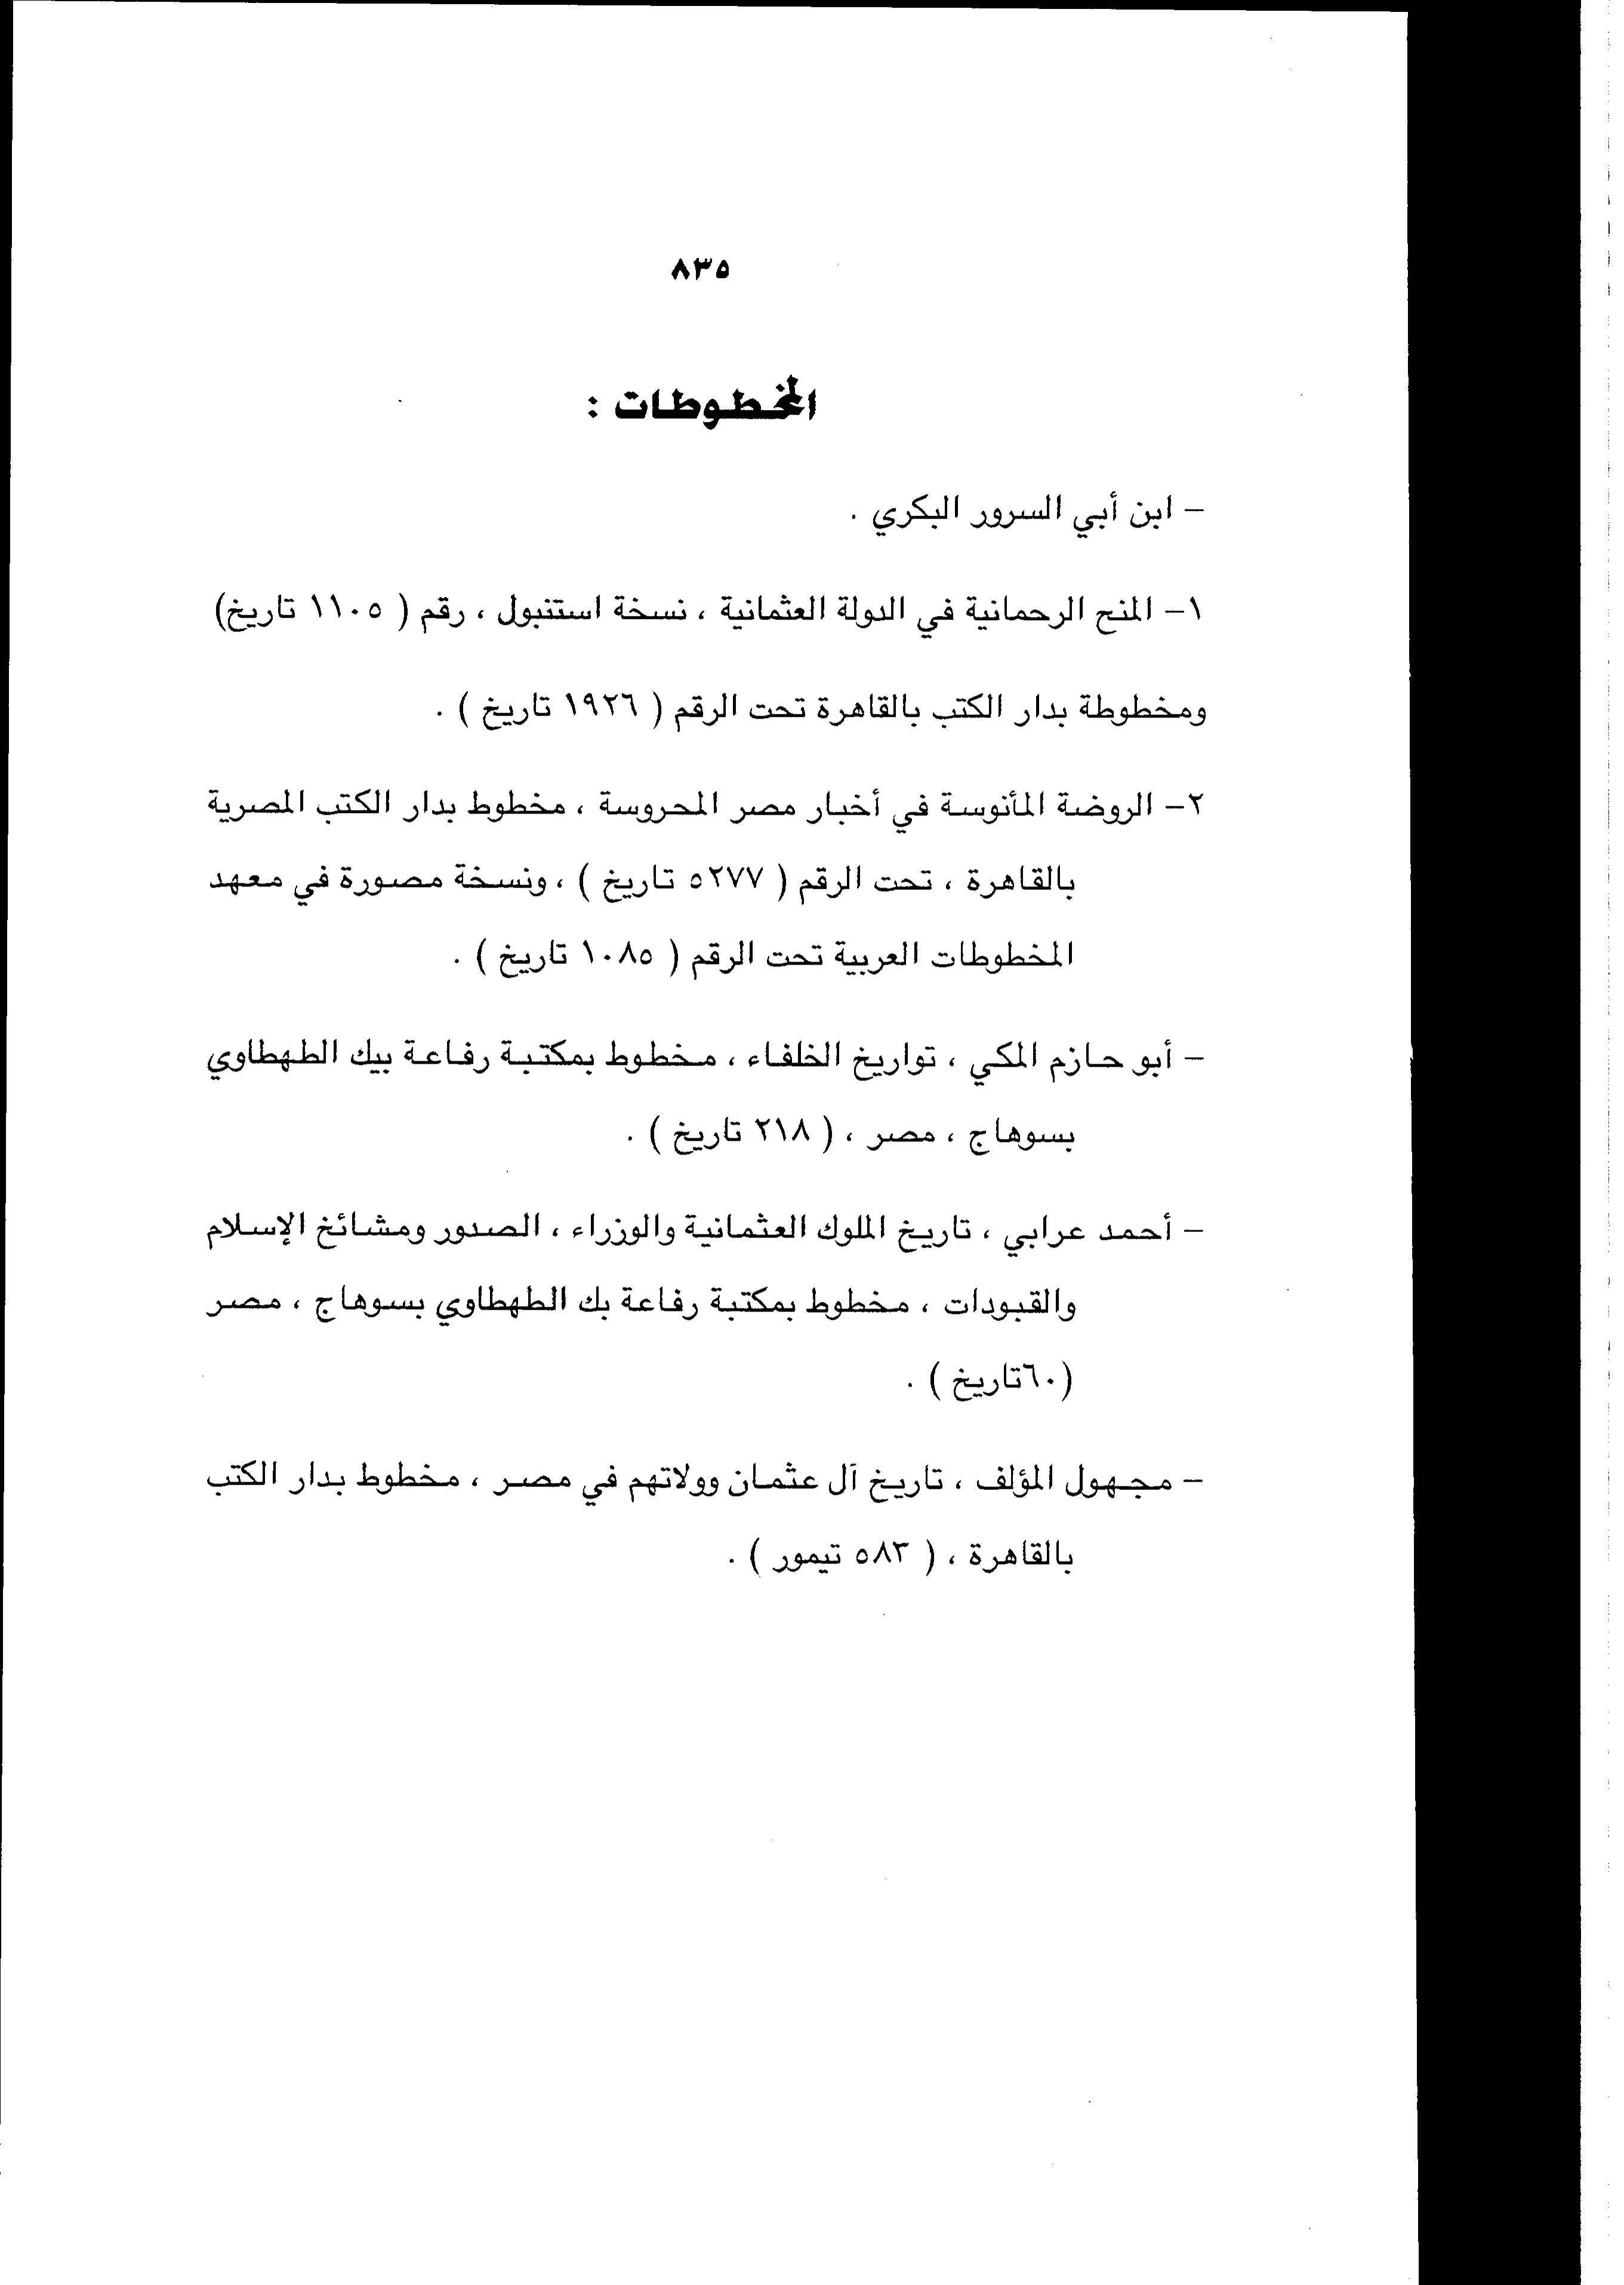 ٨٣٥
المخطوطات :
– ابن أبي السرور البكري .
١– المنح الرحمانية في الدولة العثمانية ، نسخة استنبول ، رقم ( ١١٠٥ تاريخ)
ومخطوطة بدار الكتب بالقاهرة تحت الرقم ( ١٩٢٦ تاريخ ) .
٢– الروضة المأنوسة في أخبار مصر المحروسة ، مخطوط بدار الكتب المصرية
بالقاهرة ، تحت الرقم ( ٥٢٧٧ تاريخ ) ، ونسخة مصورة في معهد
المخطوطات العربية تحت الرقم ( ١٠٨٥ تاريخ ) .
– أبو حازم المكي ، تواريخ الخلفاء ، مخطوط بمكتبة رفاعة بيك الطهطاوي
بسوهاج ، مصر ، ( ٢١٨ تاريخ ) .
– أحمد عرابي ، تاريخ الملوك العثمانية والوزراء ، الصدور ومشائخ الإسلام
والقبودات ، مخطوط بمكتبة رفاعة بك الطهطاوي بسوهاج ، مصر
(٦٠تاريخ ) .
– مجهول المؤلف ، تاريخ آل عثمان وولاتهم في مصر ، مخطوط بدار الكتب
بالقاهرة ، ( ٥٨٣ تيمور ) .